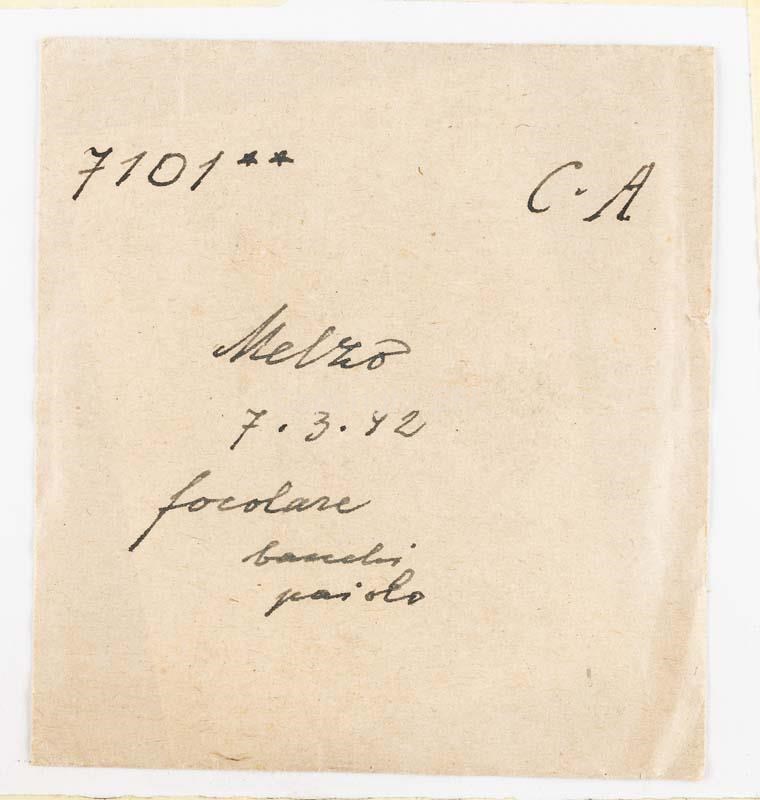 7101** C.A
Melzo
7.3.42
focolare
banchi
paiolo